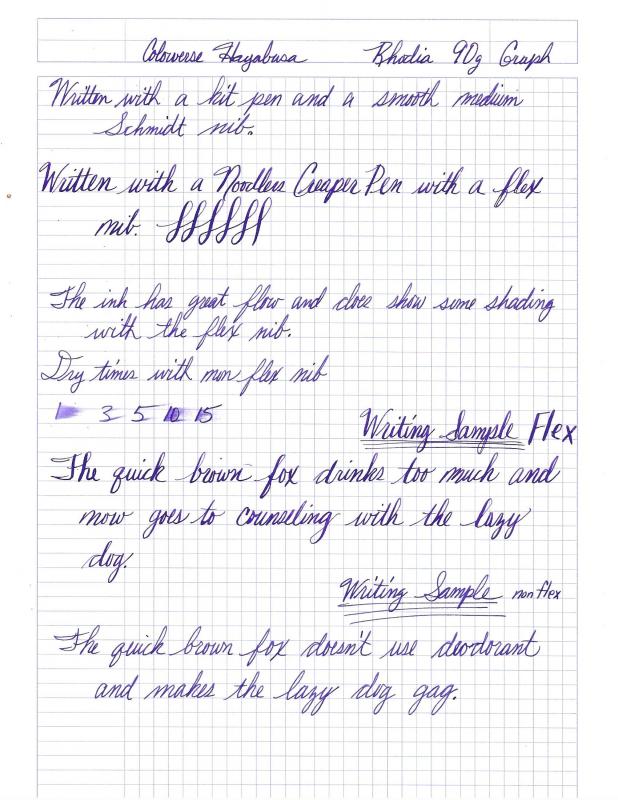 Colorverse Hayabusa Rhodia 90g Graph
Written with a kit pen and a smooth medium
Schmidt nib.
Written with a Noodlers Creaper Pen with a flex
nib. ffffff
The ink has great flow and does show some shading
with the flex nib.
Dry times with non flex nib
1 3 5 10 15
Writing Sample Flex
The quick brown fox drinks too much and
now goes to counseling with the lazy
dog.
Writing Sample non flex
The quick brown fox doesn't use deodorant
and makes the lazy dog gag.